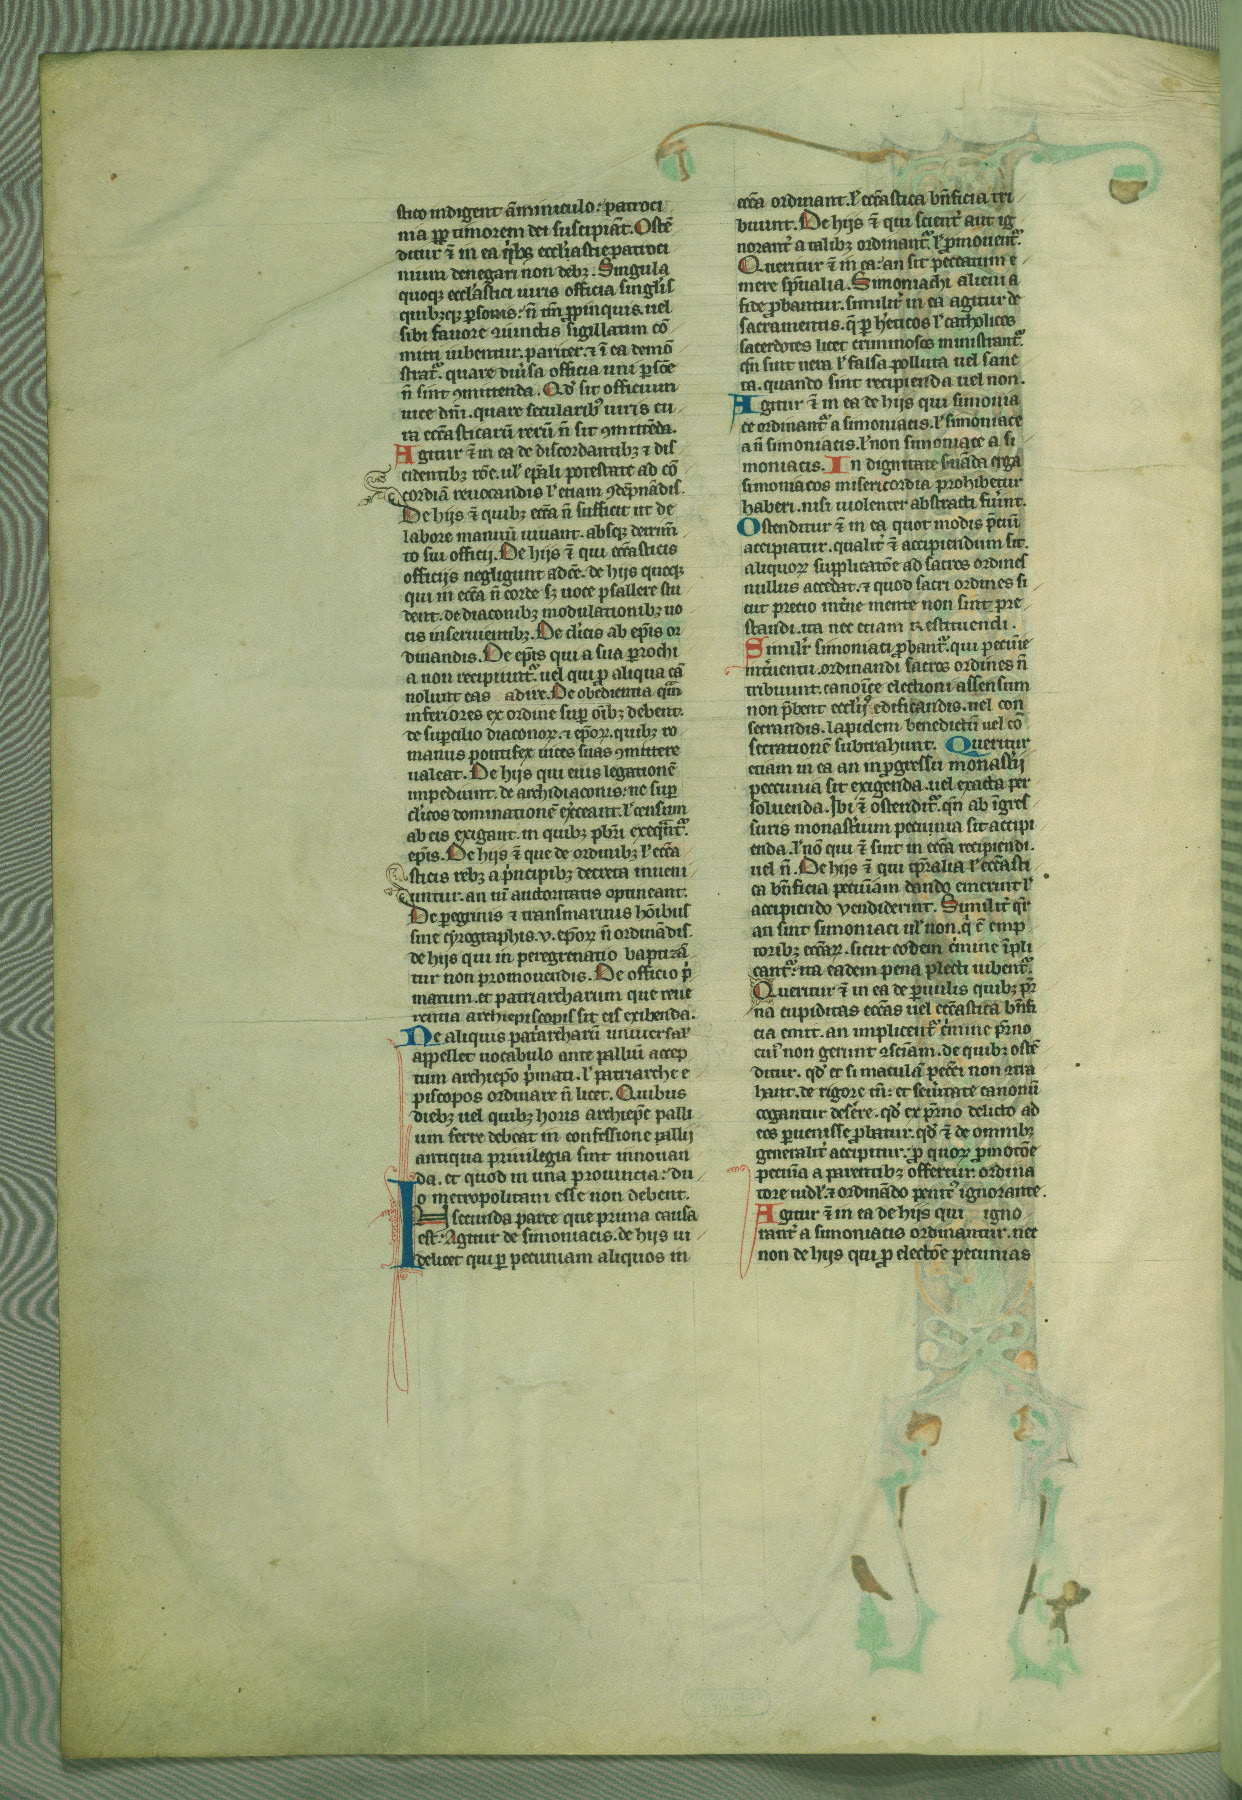 stico indigent ãminiculo: patroci
nia ꝓpt timorem dei suscipiãt. Ostẽ
ditur ⁊̃ in ea q̇ibꝫ eccl'iastie patroci
nium denegari non debꝫ. Singula
quoqꝫ eccl'astici iuris officia singl'is
quibꝫcqꝫ ꝑsonis: ñ tm̃ ꝓpinquis. uel
sibi fauore iunctis sigillatim cõ
mitti iubentur. pariter. ⁊ ĩ ea demõ
strat᷑. quare diũsa officia uni ꝑsõe
ñ sint ꝯmittenda. Qd' sit officium
uice dñi. quare secularibꝰ uiris cu
ra eccãsticarũ rerũ ñ sit ꝯmittẽda.
Agitur ⁊̃ in ea de discordantibꝫ ⁊ dis
cidentibꝫ rõe. ul' ep̃ali potestate ad cõ
cordiã reuocandis l' etiam ꝯdẽpnãdis.
De hijs ⁊̃ quibꝫ eccã ñ sufficit ut de
labore manuũ uiuant. absqꝫ detrim̃
to sui officij. De hijs ⁊̃ qui eccãsticis
officijs negligunt adẽe. de hijs quoqꝫ
qui in eccã ñ corde sꝫ uoce psallere stu
dent. de diaconibꝫ modulationibꝫ uo
cis inseruientibꝫ. De cl'icis ab ep̃is or
dinandis. De ep̃is qui a sua parrochi
a non recipiunt᷑. uel qui ꝓ aliqua cã
nolunt eas adire. De obedientia quã
inferiores ex ordine suꝑ oĩbꝫ debent.
de suꝑcilio diaconoꝝ. ⁊ ep̃oꝝ. quibꝫ ro
manus pontifex uices suas ꝯmittere
ualeat. De hijs qui eius legationẽ
impediunt. de archidiaconis: ne suꝑ
cl'icos dominationẽ exerceant. l' censum
ab eis exigant. in quibꝫ p̃bri exequãt᷑.
ep̃is. De hijs ⁊̃ que de ordinibꝫ l' eccã
sticis rebꝫ a p̃ncipibꝫ decreta inueni
untur. an uim auctoritatis optineant.
De peregrinis ⁊ transmarinis hoĩbus
sine cyrographis .v. ep̃oꝝ ñ ordinãdis.
de hijs qui in peregrinatio baptizã
tur non promouendis. De officio p̃
matum. et patriarcharum que reue
rentia archiepiscopis sit eis exibenda.
Ne aliquis patarcharũ uniuersaľ
appellet uocabulo ante palliũ accep
tum archiep̃o p̃mati. l' patriarche e
piscopos ordinare ñ licet. Quibus
diebꝫ uel quibꝫ horis archiep̃c palli
um ferre debeat in confessione pallij
antiqua priuilegia sint innouan
da. et quod in una prouincia: du
o metropolitani esse non debent.
In secunda parte que prima causa
est: Agitur de simoniacis. de hijs ui
delicet qui ꝑ pecuniam aliquos in
eccã ordinant. l' eccãstica bñficia tri
buunt. De hijs ⁊̃ qui scient' aut ig
norant' a talibꝫ ordinant᷑. l' ꝓmouent᷑.
Queritur ⁊̃ in ea: an sit peccatum e
mere sp̃ualia. Simoniachi alieni a
fide ꝓbantur. similit' in ea agitur de
sacramentis. q̃ ꝑ h'eticos l' catholicos
sacerdotes licet criminosos ministrant᷑.
qñ sint uera l' falsa. polluta uel sanc
ta. quando sint recipienda uel non.
Agitur ⁊̃ in ea de hijs qui simonia
ce ordinant᷑ a simoniacis. l' simoniace
a ñ simoniacis. l' non simoniace a si
moniacis. In dignitate seruãda erga
simoniacos misericordia prohibetur
haberi. nisi uiolenter abstracti fu'int.
Ostenditur ⁊̃ in ea quot modis p̃ciũ
accipiatur. qualit' ⁊̃ accipiendum sit.
aliquoꝝ supplicatõe ad sacros ordines
nullus accedat. ⁊ quod sacri ordines si
cut precio int'ueniente non sint pre
standi. ita nec etiam restituendi.
Similr̃ simoniaci ꝓbant᷑. qui pecunie
int'uentu. ordinandi sacros ordines ñ
tribuunt. canoĩce electioni assensum
non p̃bent eccl'ijs edificandis. uel con
secrandis. lapidem benedictũ uel cõ
secrationẽ subtrahunt. Queritur
etiam in ea an in ꝓgressu monast'ij
peccunia sit exigenda. uel exacta per
soluenda. Ibi ⁊̃ ostendit᷑. qñ ab ĩgres
suris monast'ium pecunia sit accipi
enda. l' nõ qui ⁊̃ sint in eccã recipiendi.
uel ñ. De hijs ⁊̃ qui ep̃alia l' eccãsti
ca bñficia pecuniam dando emerint l'
accipiendo vendiderint. Similit' q̃r
an sint simoniaci ul' non. q̇ ẽ emp
toribꝫ eccãꝝ. sicut eodem c'mine ĩpli
cant᷑: ita eadem pena plecti iubent᷑.
Queritur ⁊̃ in ea de ꝑuulis quibꝫ pr̃
na cupiditas eccãs uel eccãstica bñfi
cia emit. an implicent᷑ c'mine pr̃no
cui' non gerunt ꝯsciam. de quibꝫ ostẽ
ditur. qd' et si maculã peccĩ non ꝯtra
hant. de rigore tñ: et seueritate canonũ
cogantur des'ere. qd' ex pr̃no delicto ad
eos ꝑuenisse ꝓbatur. qd' ⁊̃ de omnibꝫ
generalit' accipitur. ꝓ quoꝝ ꝓmotõe
pecunia a parentibꝫ offertur. ordina
tore uidl'. ⁊ ordinãdo penit' ignorante.
Agitur ⁊̃ in ea de hijs qui igno
rant' a simoniacis ordinantur. nec
non de hijs qui ꝓ electõe pecunias